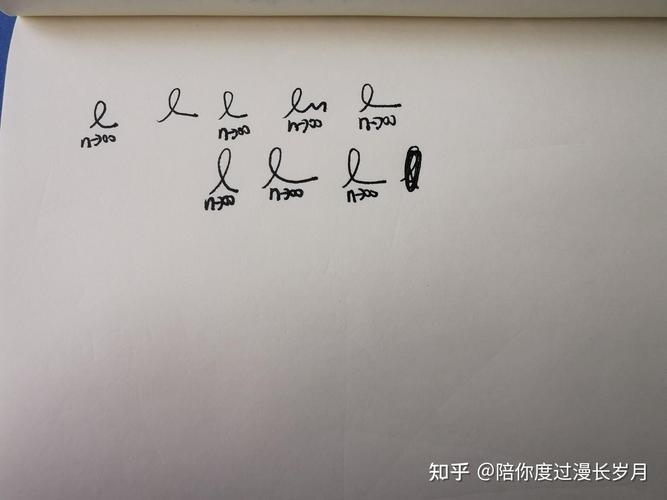 l l l lm l
n→∞ n→∞ n→∞ n→∞
l l l
n→∞ n→∞ n→∞
知乎 @陪你度过漫长岁月